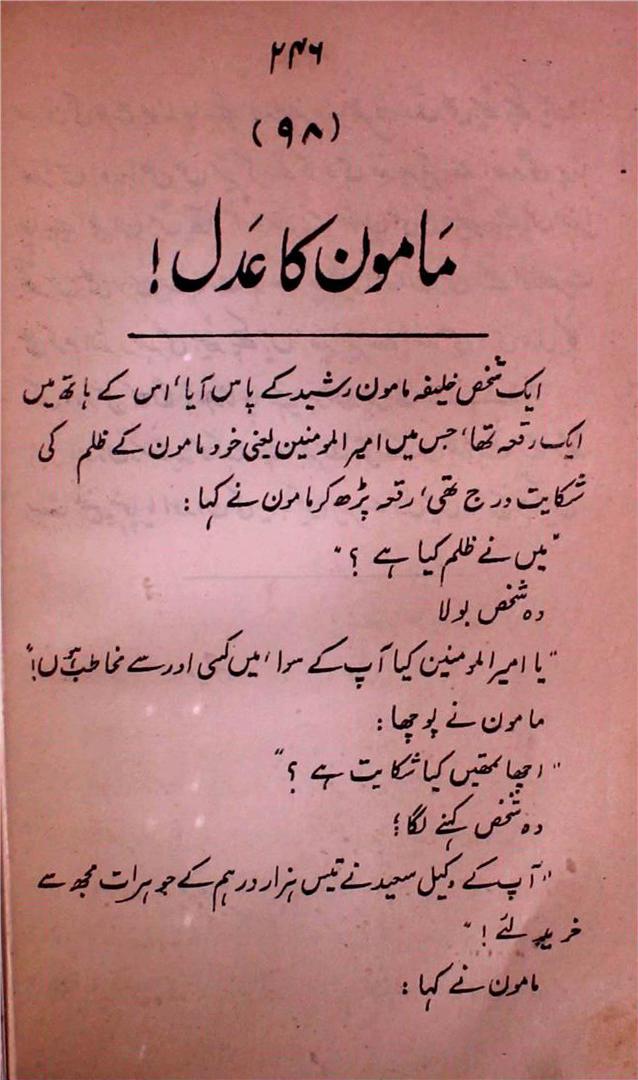 ۲۴۶
(۹۸)
مَامون کا عَدل!
ایک شخص خلیفہ مامون رشید کے پاس آیا، اس کے ہاتھ میں
ایک رقعہ تھا، جس میں امیر المومنین یعنی خود مامون کے ظلم کی
شکایت درج تھی، رقعہ پڑھ کر مامون نے کہا:
"میں نے ظلم کیا ہے؟"
وہ شخص بولا
"یا امیر المومنین کیا آپ کے سوا، میں کسی اور سے مخاطب ہوں!"
مامون نے پوچھا:
"اچھا تمھیں کیا شکایت ہے؟"
وہ شخص کہنے لگا؛
"آپ کے وکیل سعید نے تیس ہزار درہم کے جوہرات مجھ سے
خرید لئے!"
مامون نے کہا: